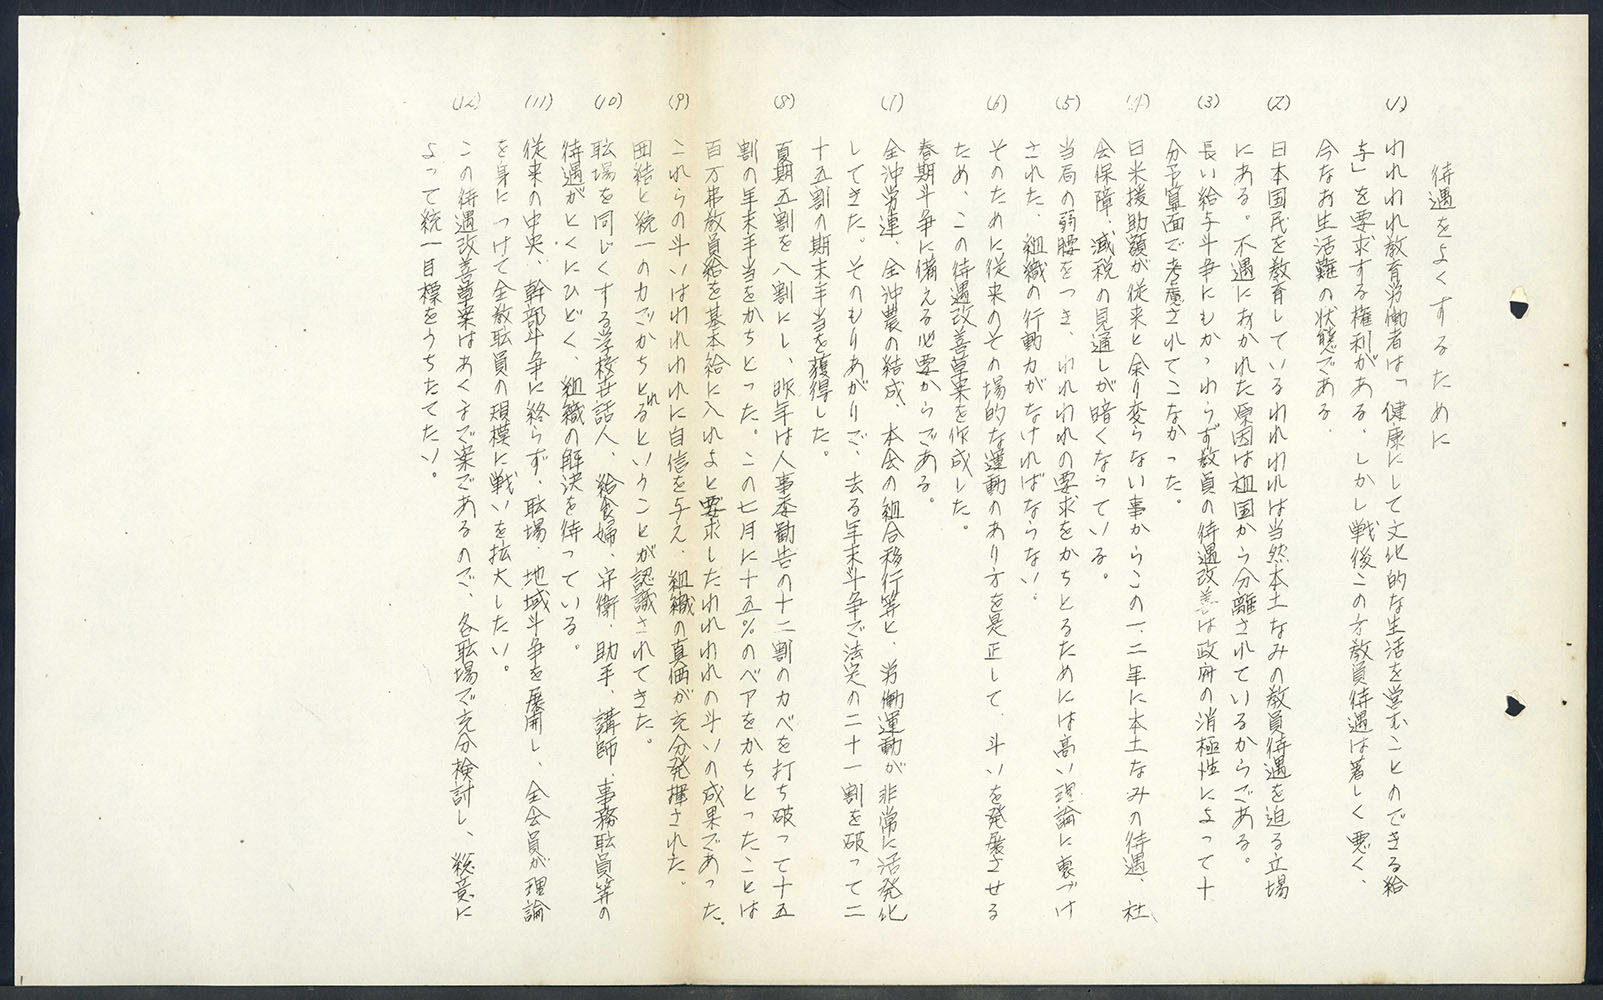 待遇をよくするために
(1) われわれ教育労働者は「健康にして文化的な生活を営むことのできる給
与」を要求する権利がある。しかし戦後この方教員待遇は著しく悪く、
今なお生活難の状態である。
(2) 日本国民を教育しているわれわれは当然本土なみの教員待遇を迫る立場
にある。不遇におかれた原因は祖国から分離されているからである。
(3) 長い給与斗争にもかゝわらず教員の待遇改善は政府の消極性によって十
分予算面で考慮されてこなかった。
(4) 日米援助額が従来と余り変らない事からこの一、二年に本土なみの待遇、社
会保障、減税の見通しが暗くなっている。
(5) 当局の弱腰をつき、われわれの要求をかちとるためには高い理論に裏づけ
された、組織の行動力がなければならない。
(6) そのために従来のその場的な運動のあり方を是正して、斗いを発展させる
ため、この待遇改善草案を作成した。
春期斗争に備える必要からである。
(7) 全沖労連、全沖農の結成、本会の組合移行等と、労働運動が非常に活発化
してきた。そのもりあがりで、去る年末斗争で法定の二十一割を破って二
十五割の期末手当を獲得した。
(8) 夏期五割を八割にし、昨年は人事委勧告の十二割のカベを打ち破って十五
割の年末手当をかちとった。この七月に十五%のベアをかちとったことは
百万弗教員給を基本給に入れよと要求したわれわれの斗いの成果であった。
(9) これらの斗いはわれわれに自信を与え、組織の真価が充分発揮された。
団結と統一の力でかちとれるということが認識されてきた。
(10) 職場を同じくする学校世話人、給食婦、守衛、助手、講師、事務職員等の
待遇がとくにひどく、組織の解決を待っている。
(11) 従来の中央、幹部斗争に終らず、職場、地域斗争を展開し、全会員が理論
を身につけて全教職員の規模に戦いを拡大したい。
(12) この待遇改善草案はあくまで案であるので、各職場で充分検討し、総意に
よって統一目標をうちたてたい。